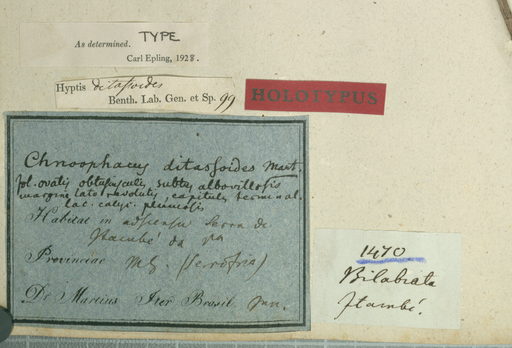 As determined. TYPE
Carl Epling, 1928.
Hyptis ditassoides
Benth. Lab. Gen. et Sp. 99
HOLOTYPUS
Chnoophacus ditassoides Mart.
fol. ovatis obtusiusculis subtus albovillosis
margine late revolutis, capitulis terminal.
lac. calyc. plumosis
Habitat in adscensu Serra de
Itambé da
Provinciae M. G. (Serro frio)
Dr Martius Iter Brasil. Jun.
1470
Bilabiata
Itambé.